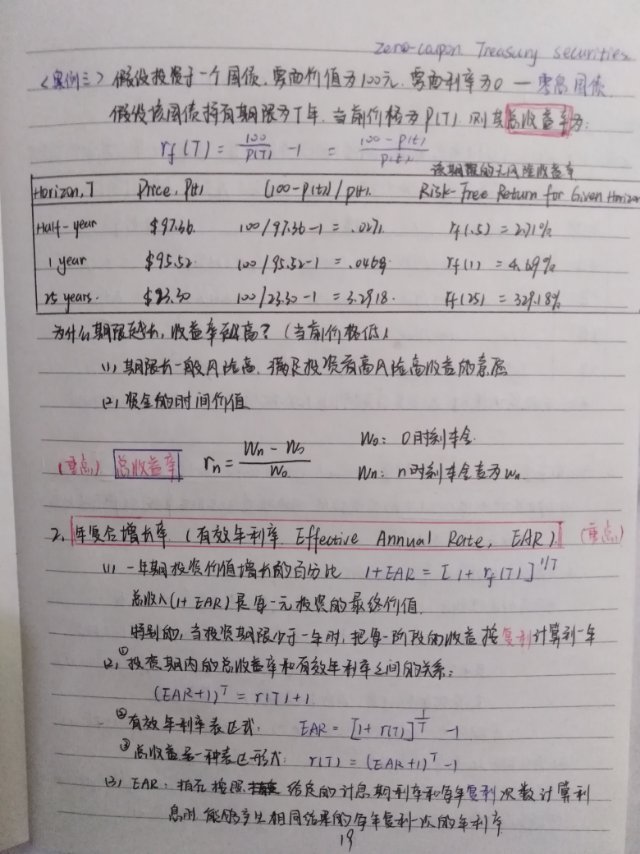 Zero-coupon Treasury securities
<案例三> 假设投资于一个国债,票面价值为100元,票面利率为0 — 零息国债
假设该国债持有期限为T年,当前价格为P(T),则其总收益率为:
rf(T) = 100/P(T) - 1 = 100-P(t)/P(t)
该期限的无风险收益率
Horizon, T Price, P(t) (100-P(t))/P(t) Risk-Free Return for Given Horizon
Half-year $97.36 100/97.36-1 = .0271 rf(.5) = 2.71%
1 year $95.52 100/95.52-1 = .0469 rf(1) = 4.69%
25 years. $23.30 100/23.30-1 = 3.2918. rf(25) = 329.18%
为什么期限越长,收益率越高?(当前价格低)
(1) 期限长一般风险高,满足投资者高风险高收益的意愿
(2) 资金的时间价值
(重点) 总收益率 rn = Wn - W0 / W0
W0: 0时刻本金
Wn: n时刻本金变为Wn
2. 年复合增长率 (有效年利率 Effective Annual Rate, EAR) (重点)
(1) 一年期投资价值增长的百分比 1+EAR = [1+rf(T)]^1/T
总收入(1+EAR)是每一元投资的最终价值.
特别的,当投资期限少于一年时,把每一阶段的收益按复利计算到一年
(2) ①投资期内的总收益率和有效年利率之间的关系:
(EAR+1)^T = r(T)+1
②有效年利率表达式: EAR = [1+r(T)]^1/T -1
③总收益另一种表达形式: r(T) = (EAR+1)^T -1
(3) EAR: 指在按照给定的计息期利率和每年复利次数计算利
息时,能够产生相同结果的每年复利一次的年利率
19